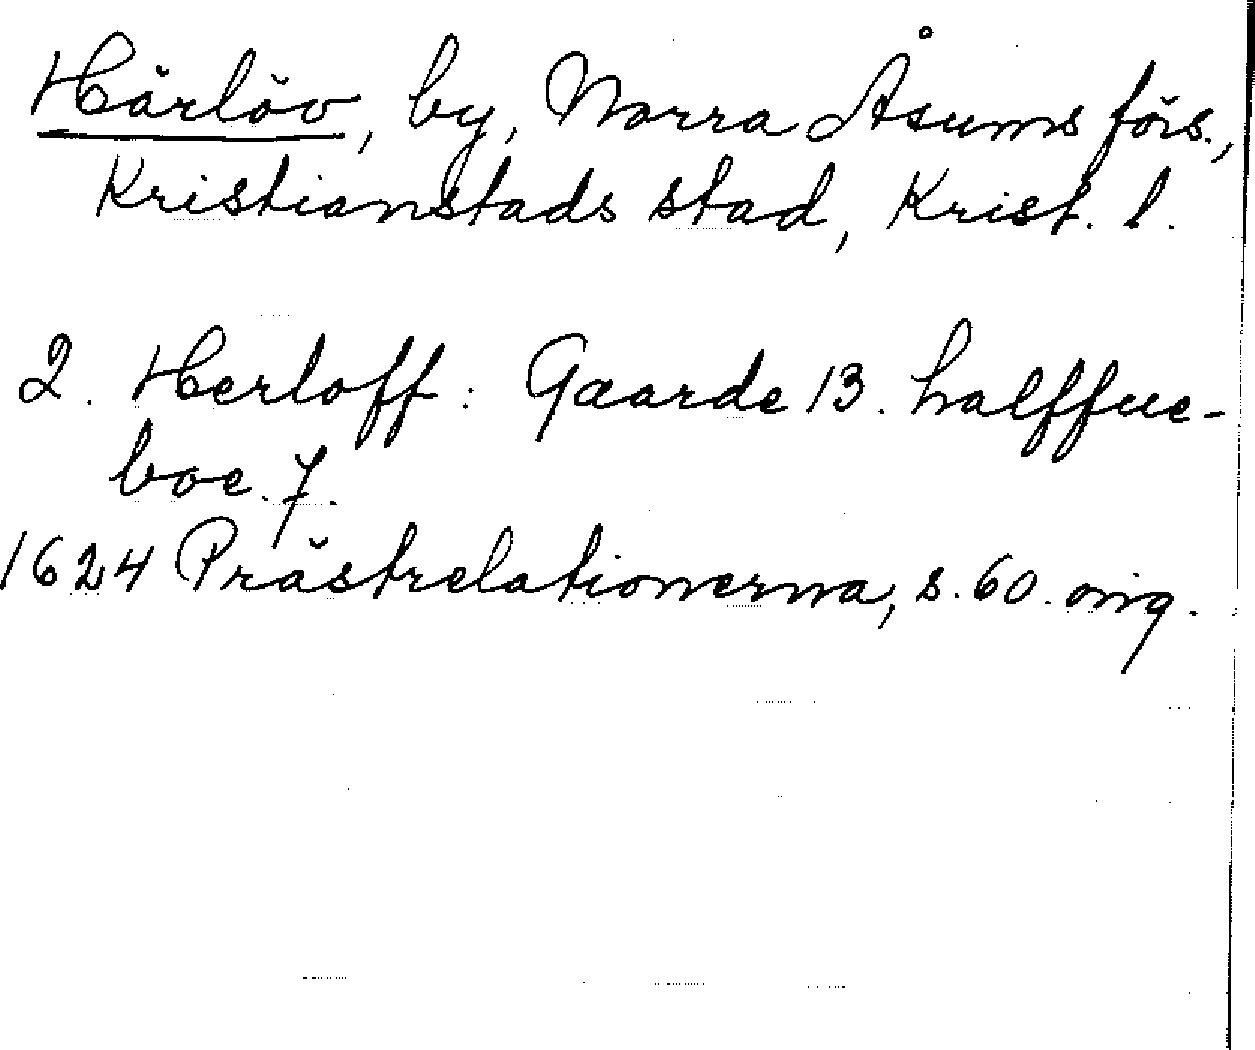 Härlöv, by, Norra Åsums förs.,
Kristianstads stad, Krist. l.
2. Herloff: Gaarde 13. halffue-
boe. 7.
1624 Prästrelationerna, s. 60. orig.